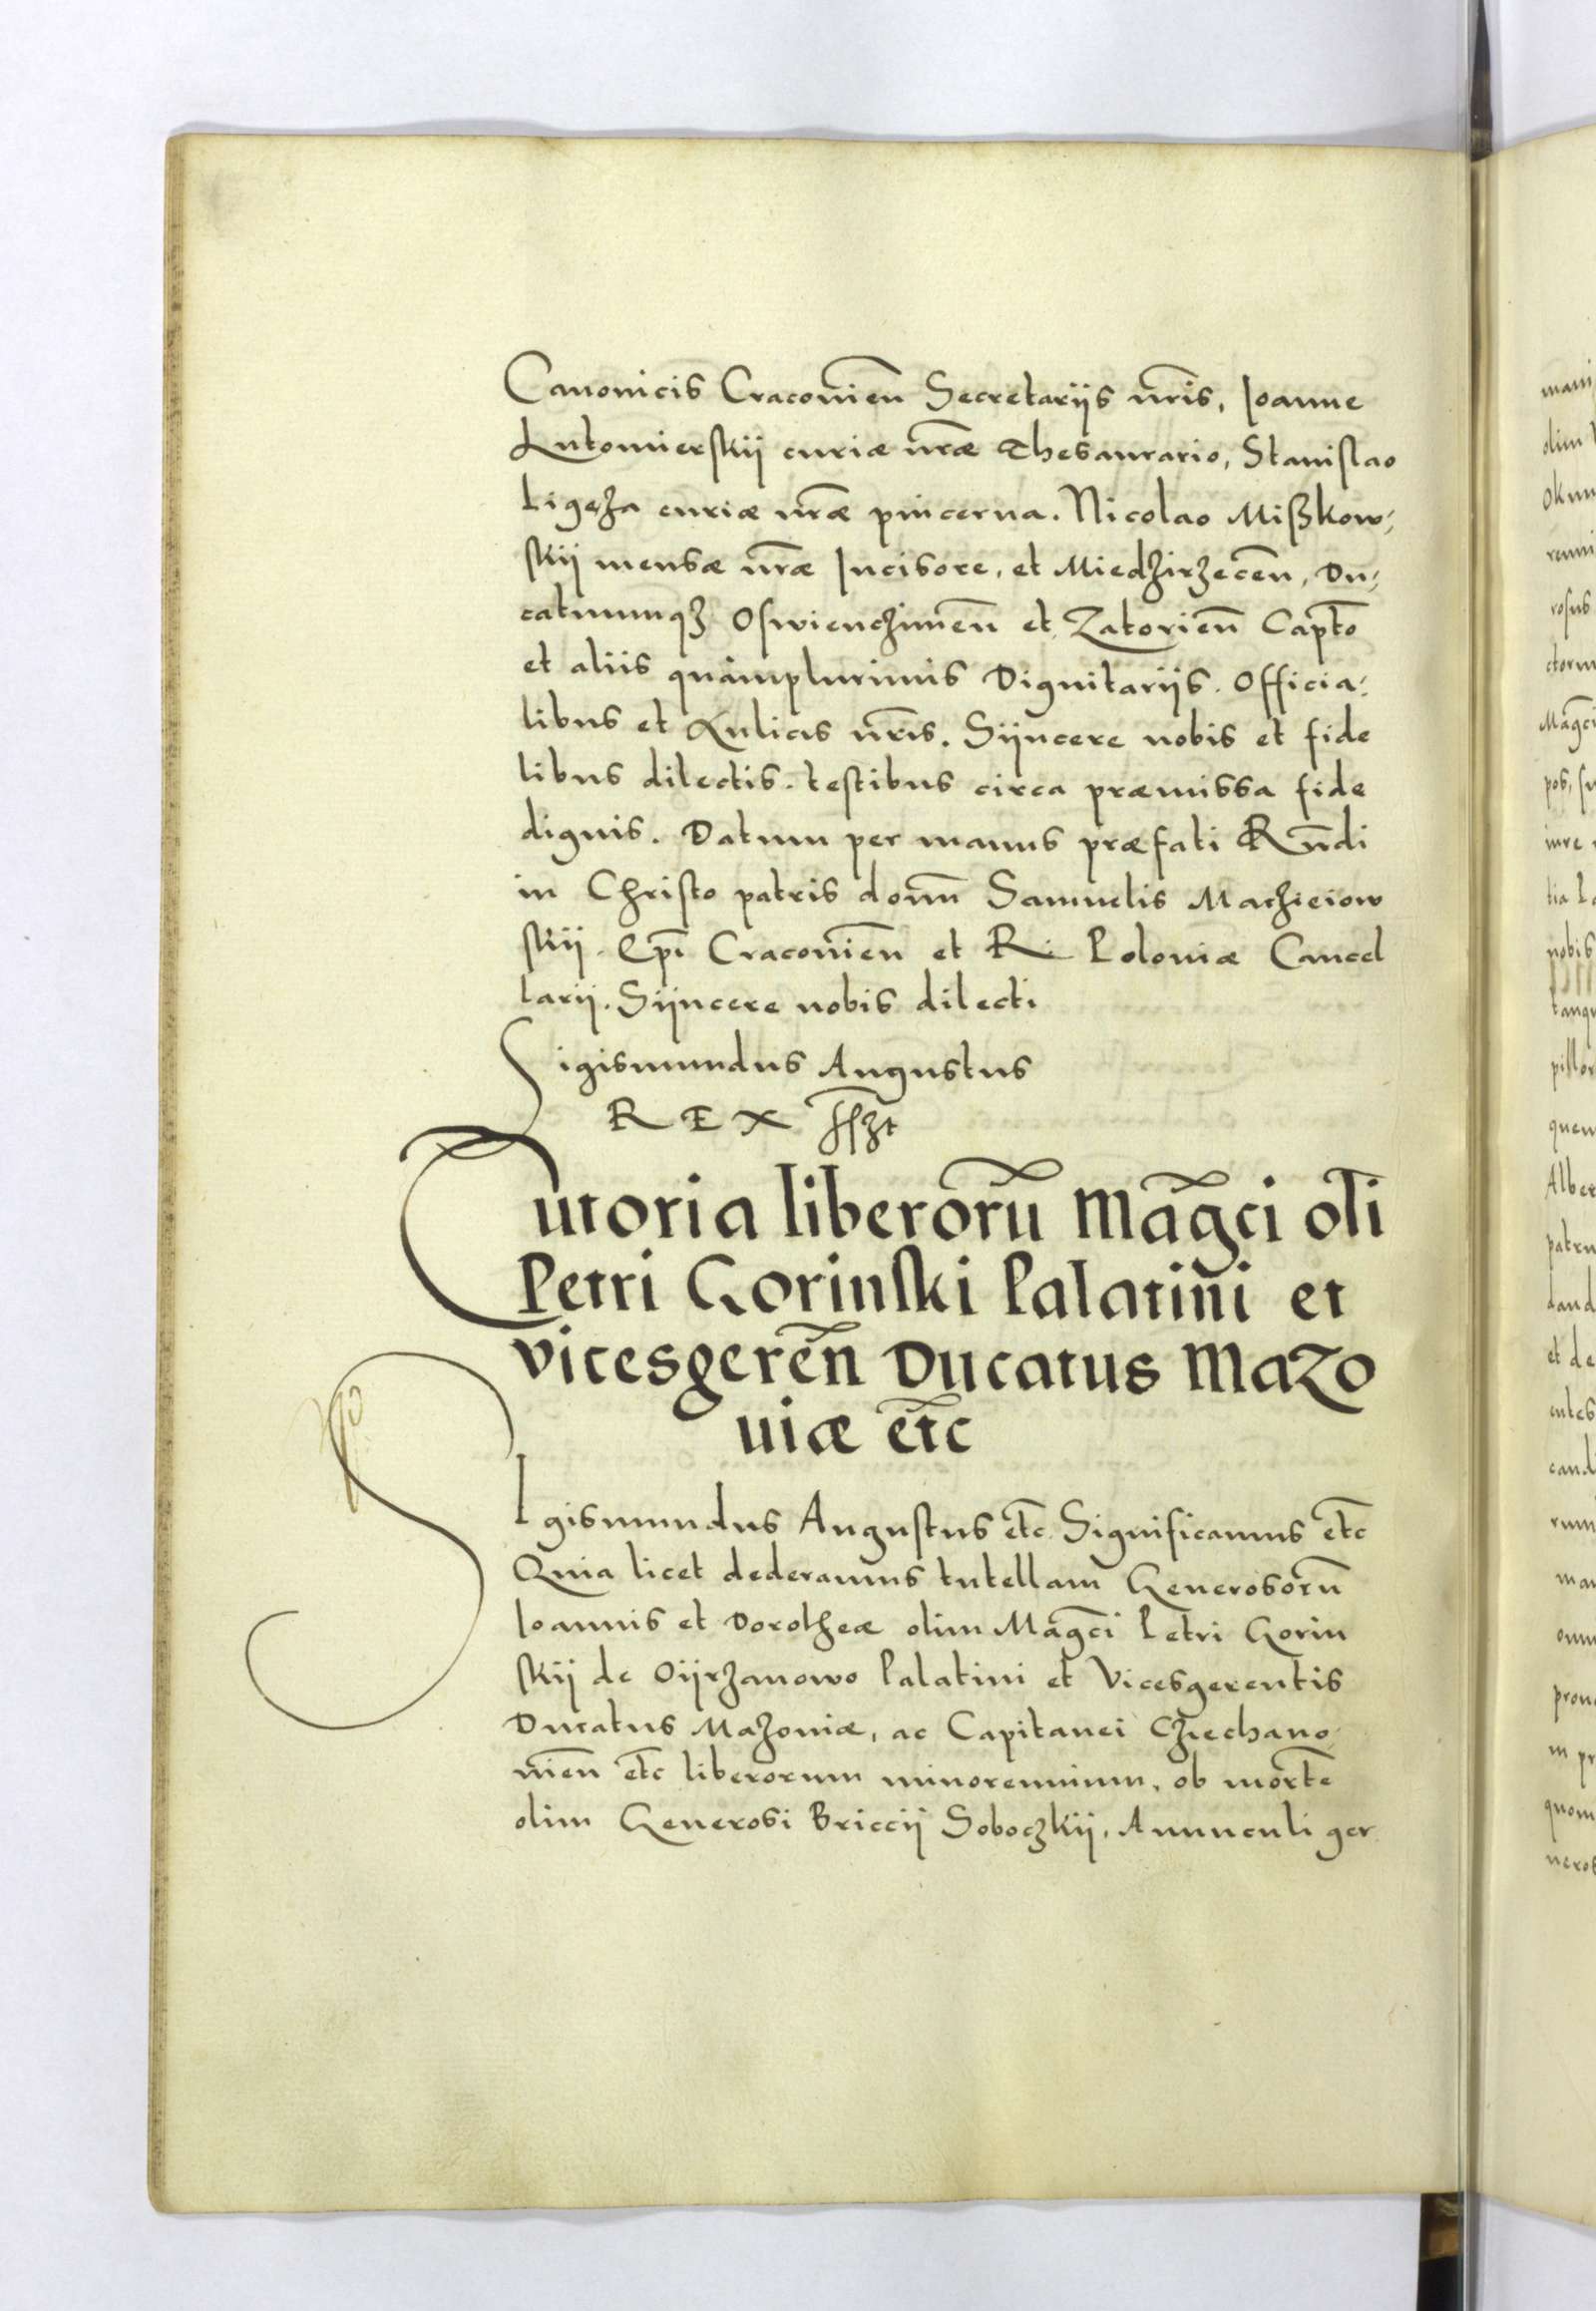 Canonicis Cracovien̄ Secretariis nr̄is, Ioanne
Lutomierskij curiæ nr̄æ Thesaurario, Stanislao
Ligęza curiæ nr̄æ pincerna. Nicolao Mißkow,
skij mensæ nr̄æ Incisore, et Miedzirzecen̄, Du,
catuumqꝫ Oswienczimen̄ et Zatorien̄ Capt̄o
et aliis quàmplurimis Dignitariis. Officia,
libus et Aulicis nr̄is. Sijncere nobis et fide
libus dilectis. testibus circa præmissa fide
dignis. Datum per manus præfati Rn̄di
in Christo patris domn̄ Samuelis Maczieiow
skij. Ep̄i Cracovien̄ et R. Poloniæ Cancel
larij. Sijncere nobis dilecti
Sigismundus Augustus
REX
Tutoria liberorū Mag̃ci oli̅
Petri Gorinski Palatini et
vicesgeren̄ Ducatus Mazo
uiæ et̄c
SIgismundus Augustus et̄c Significamus et̄c
Quia licet dederamus tutellam Generosorū
Ioannis et Dorotheæ olim Mag̃ci Petri Gorin
skij de Oijrzanowo Palatini et Vicesgerentis
Ducatus Mazoviæ, ac Capitanei Cziechano
vien̄ et̄c liberorum minorennium, ob mort̄e
olim Generosi Briccij Soboczkij, Auunculi ger